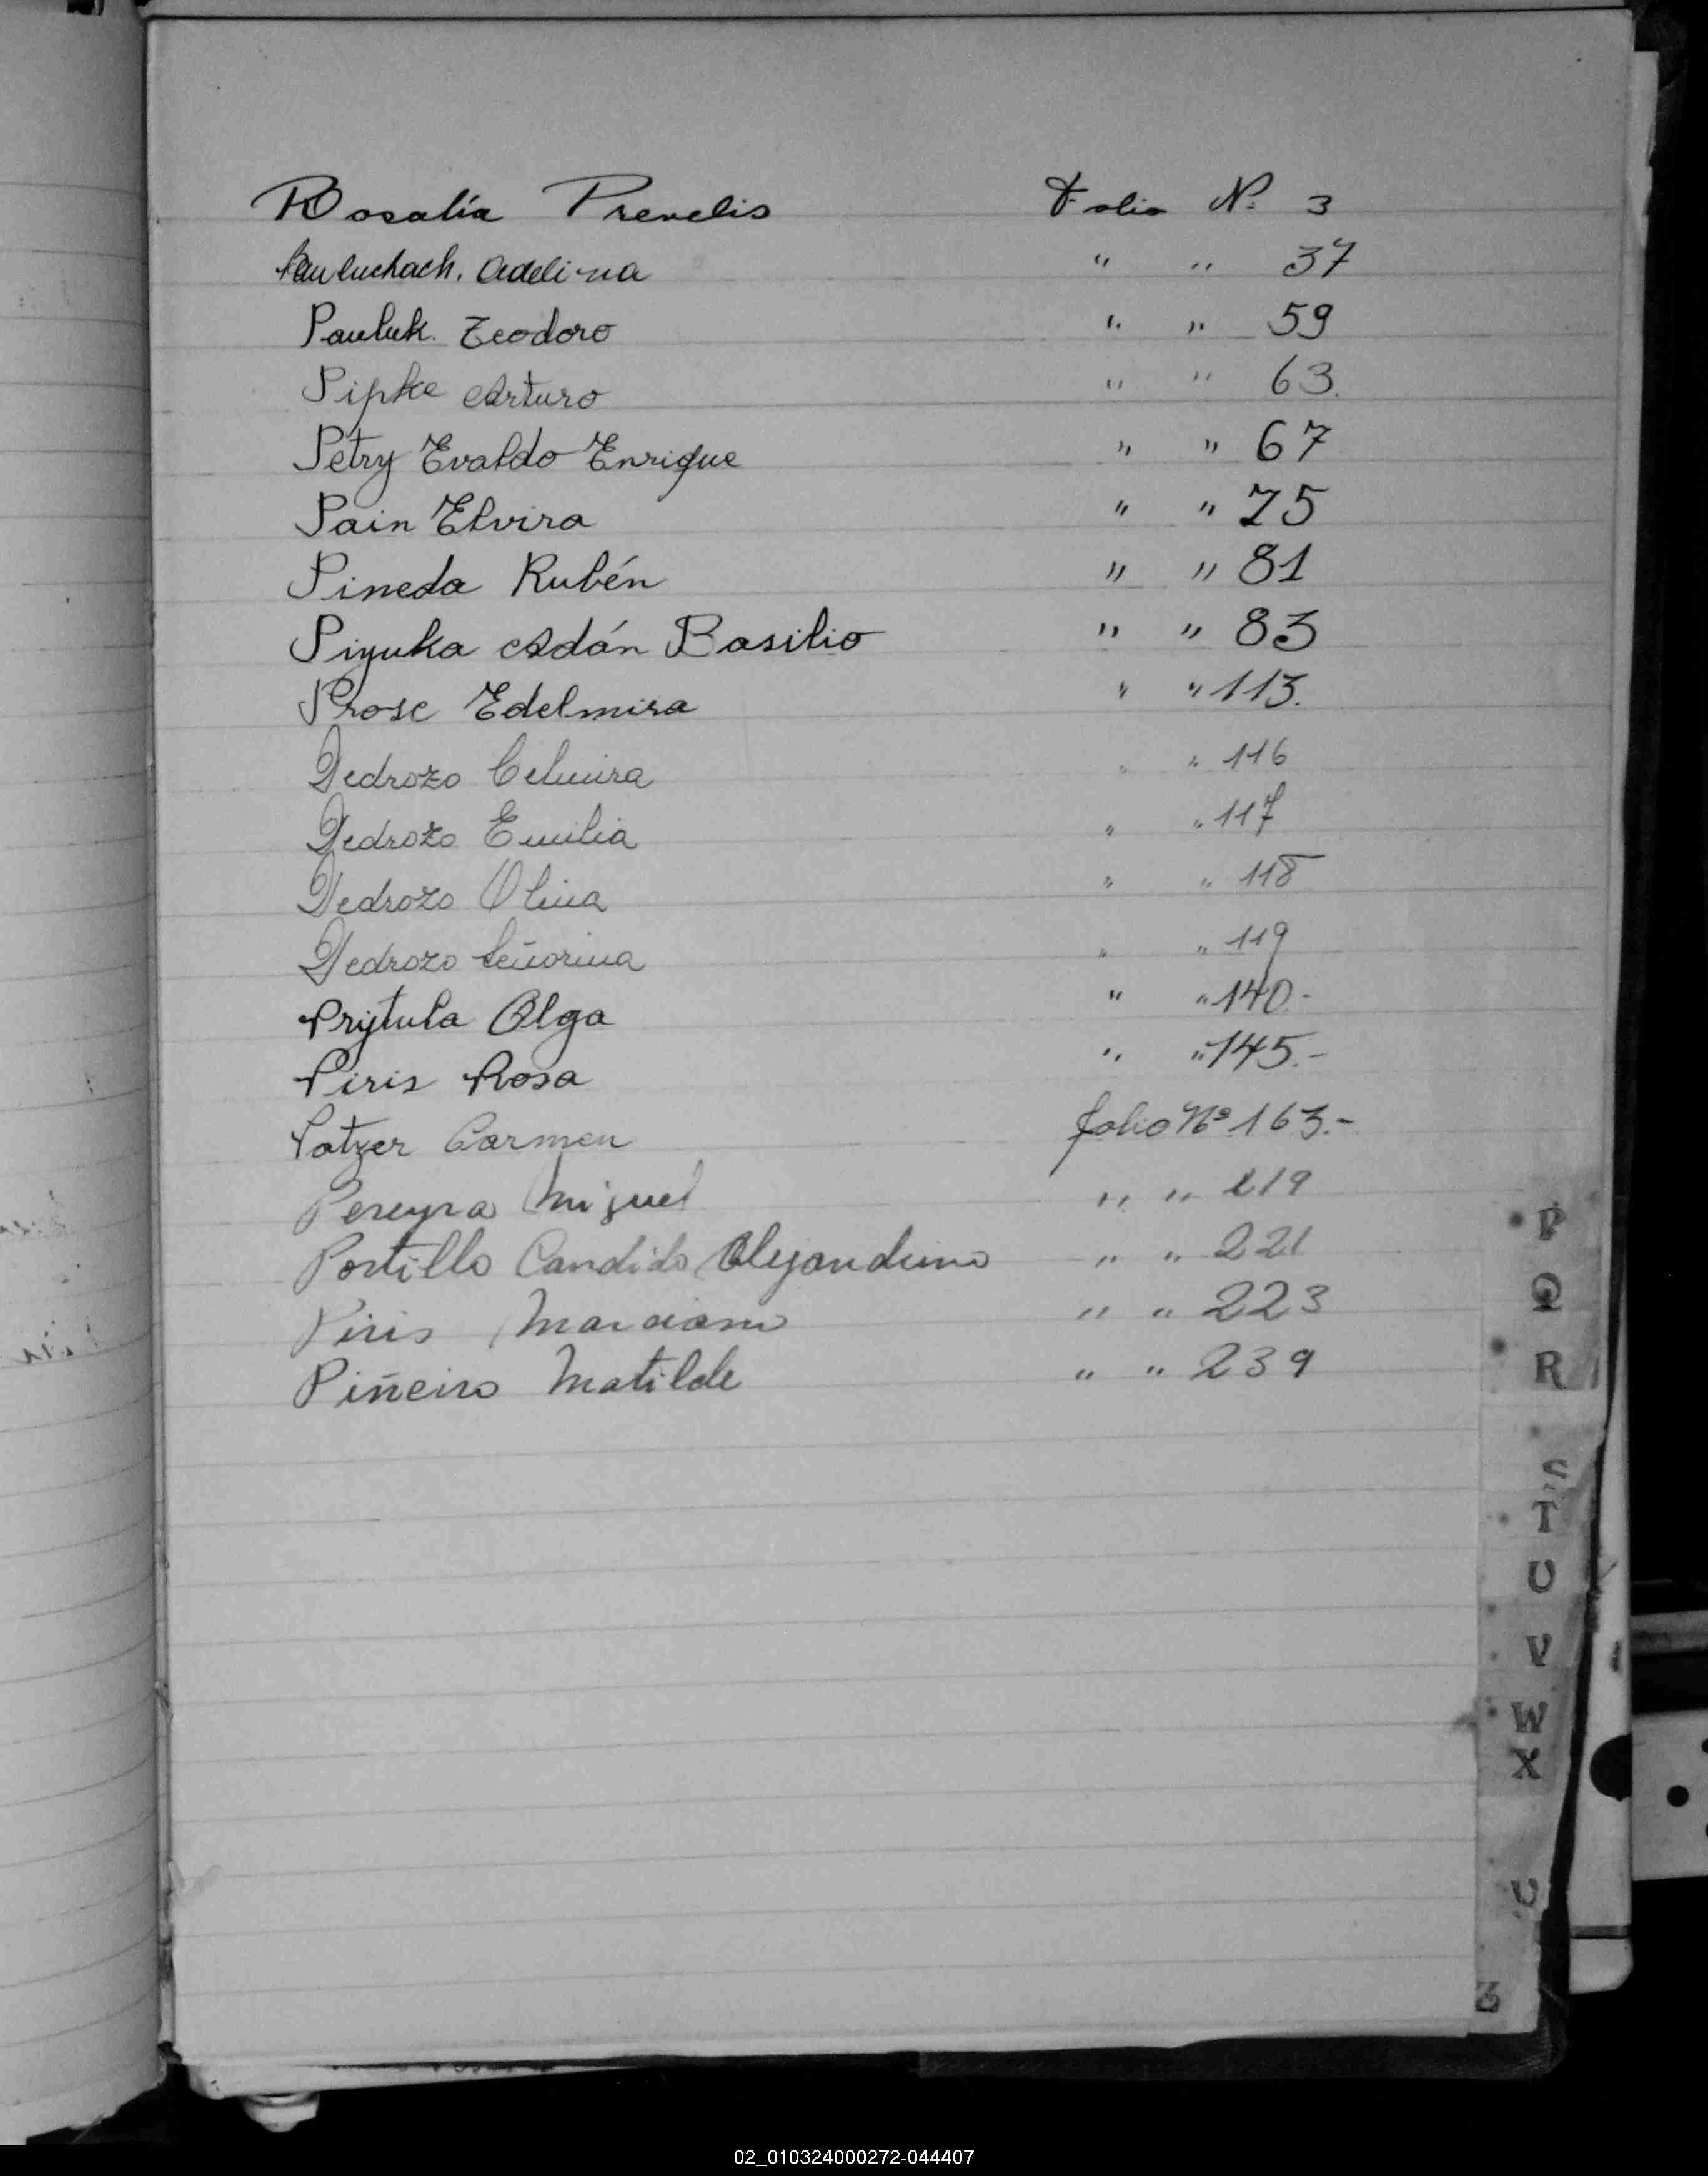 Rosalía Prevelis Folio Nº 3
Pauluchach. Adelina " " 37
Pauluk. Teodoro " " 59
Pipke Arturo " " 63.
Petry Evaldo Enrique " " 67
Pain Elvira " " 75
Pineda Rubén " " 81
Piyuka Adán Basilio " " 83
Prose Edelmira " " 113.
Pedrozo Celmira " " 116
Pedrozo Emilia " " 117
Pedrozo Olina " " 118
Pedrozo Señorina " " 119
Prytula Olga " " 140.-
Piris Rosa " " 145.-
Patzer Carmen folio Nº 163.-
Pereyra Miguel " " 219
Portillo Candido Alejandrino " " 221
Piris Marciano " " 223
Piñeiro Matilde " " 239
P
Q
R
S
T
U
V
W
X
02_010324000272-044407